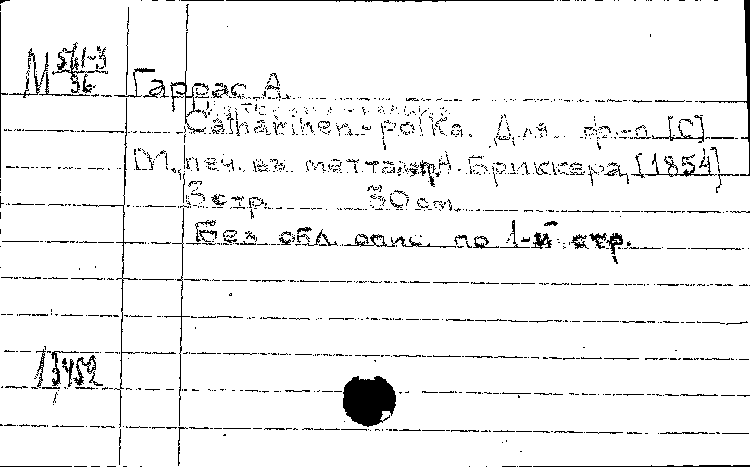 М 541-3/36 Гаррас А.
Catharinen-polka. Для ф.-п. [C]
М., печ. в А. Бриккера, [1854]
3 стр. 30 см.
Без обл. опис. по 1-й стр.
13452